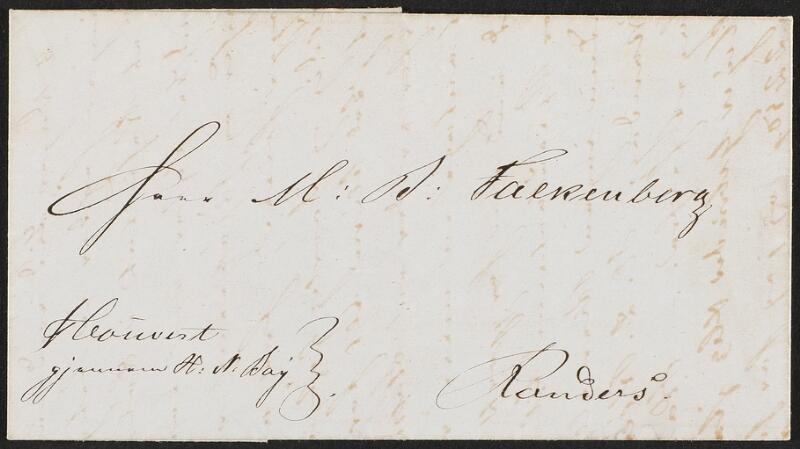 Herr M: B: Falkenberg
Couvert
gjennem H: N. Bay
Randers.